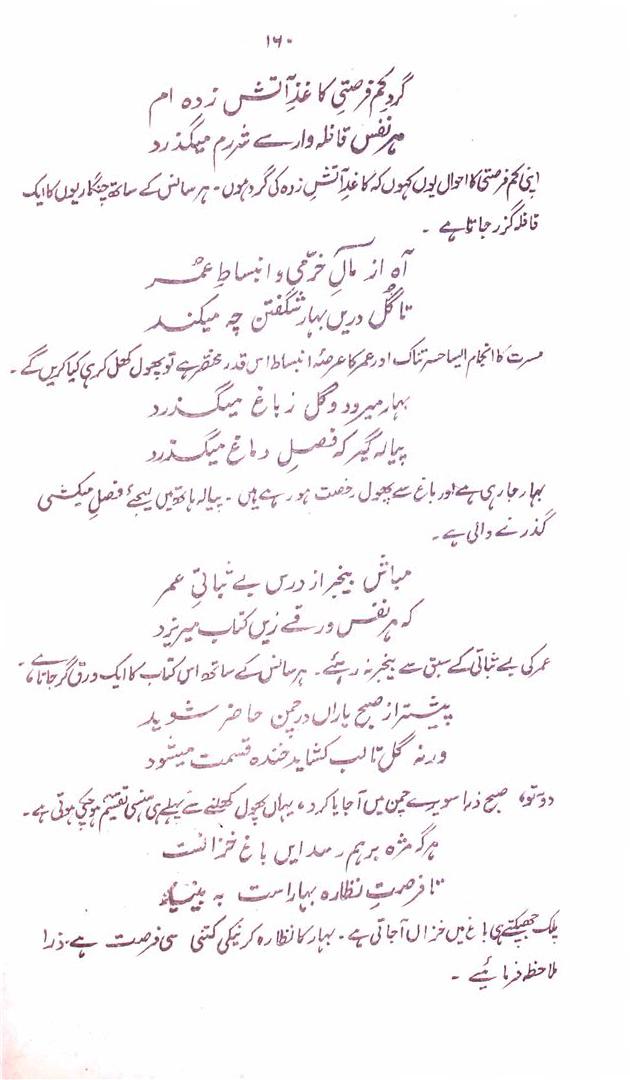 ۱۶۰
گردِ کم فرصتیِ کاغذِ آتش زدہ ام
ہر نفس قافلہ وارے شررم میگذرد
اپنی کم فرصتی کا احوال یوں کہوں کہ کاغذِ آتش زدہ کی گرد ہوں۔ ہر سانس کے ساتھ چنگاریوں کا ایک
قافلہ گزر جاتا ہے ۔
آہ از مالِ خرّمی و انبساطِ عمر
تا گل دریں بہار شگفتن چہ میکند
مسرت کا انجام ایسا حسرتناک اور عمر کا عرصۂ انبساط اس قدر مختصر ہے تو پھول کھل کر ہی کیا کریں گے۔
بہار میرود و گل ز باغ میگذرد
پیالہ گیر کہ فصلِ دماغ میگذرد
بہار جا رہی ہے اور باغ سے پھول رخصت ہو رہے ہیں ۔ پیالہ ہاتھ میں لیجئے فصلِ میکشی
گذرنے والی ہے۔
مباش بیخبر از درس بے ثباتیِ عمر
کہ ہر نفس ورقے زیں کتاب میریزد
عمر کی بے ثباتی کے سبق سے بیخبر نہ رہئے۔ ہر سانس کے ساتھ اس کتاب کا ایک ورق گر جاتا ہے۔
پیشتر از صبح یاراں در چمن حاضر شوید
ورنہ گل تا لب کشاید خندہ قسمت میشود
دوستو، صبح ذرا سویرے چمن میں آ جایا کرو، یہاں پھول کھلنے سے پہلے ہی ہنسی تقسیم ہو چکی ہوتی ہے۔
ہر گہ مژہ برہم رسد ایں باغ خزانست
تا فرصتِ نظارہ بہار است بہ بینید
پلک جھپکتے ہی باغ میں خزاں آ جاتی ہے۔ بہار کا نظارہ کرنیکی کتنی سی فرصت ہے ذرا
ملاحظہ فرمائیے ۔